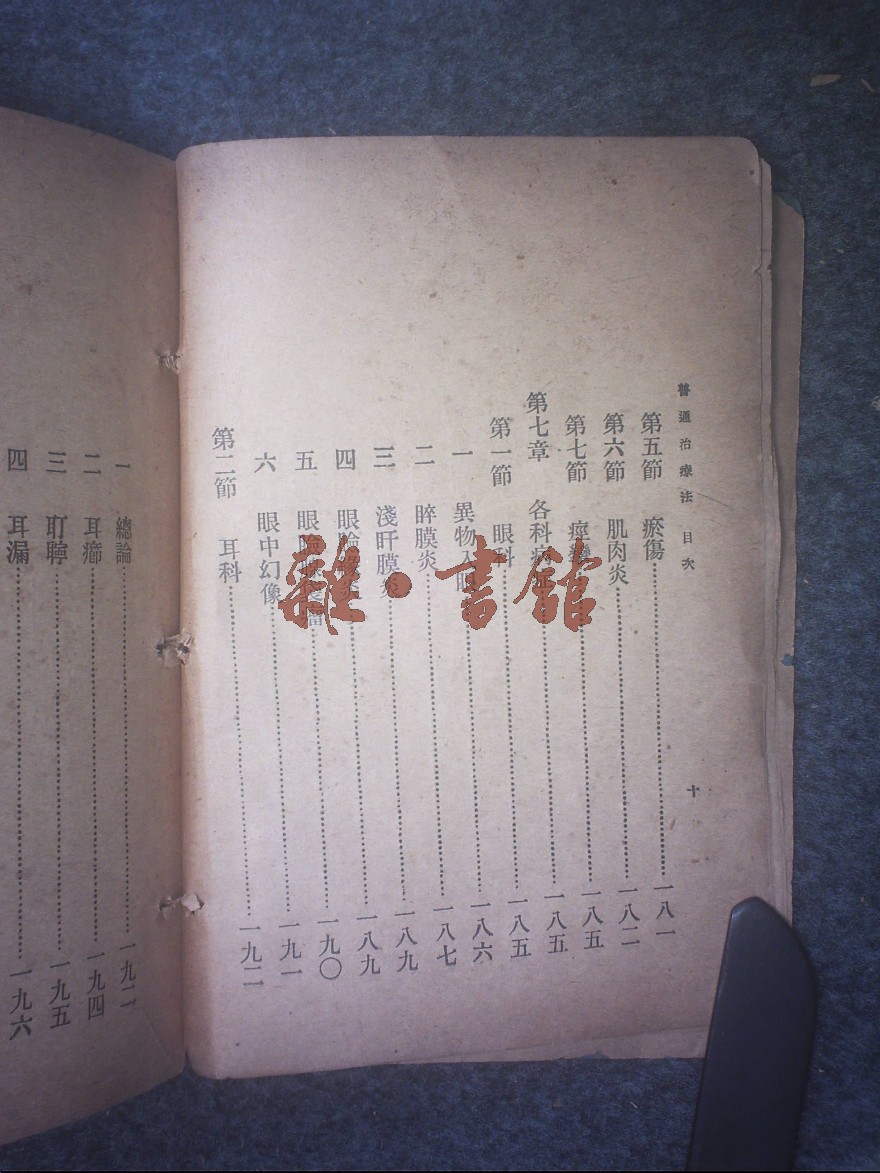 普通治療法 目次 十
第五節 瘀傷……一八一
第六節 肌肉炎……一八二
第七節 痙攣……一八五
第七章 各科病……一八五
第一節 眼科……一八五
一 異物入眼……一八六
二 睟膜炎……一八七
三 淺盰膜炎……一八九
四 眼瞼炎……一八九
五 眼瞼……一九〇
六 眼中幻像……一九一
第二節 耳科……一九二
一 總論……一九二
二 耳癤……一九四
三 耵聹……一九五
四 耳漏……一九六
雜·書館